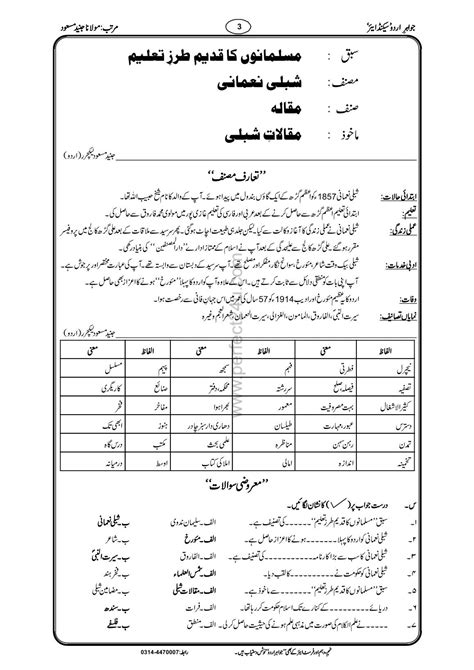 جواہر اردو سیکنڈ ایئر
3
مرتب: مولانا جنید مسعود
سبق : مسلمانوں کا قدیم طرزِ تعلیم
مصنف : شبلی نعمانی
صنف : مقالہ
ماخوذ : مقالاتِ شبلی
جنید مسعود لیکچرر (اردو)
’’تعارف مصنف‘‘
ابتدائی حالات: شبلی نعمانی 1857ء کو اعظم گڑھ کے ایک گاؤں بندول میں پیدا ہوئے۔ آپ کے والد کا نام شیخ حبیب اللہ تھا۔
تعلیم: ابتدائی تعلیم اعظم گڑھ سے حاصل کرنے کے بعد عربی اور فارسی کی تعلیم غازی پور میں مولوی محمد فاروق سے حاصل کی۔
عملی زندگی: شبلی نعمانی نے عملی زندگی کا آغاز وکالت سے کیا۔ لیکن جلد ہی طبیعت اچاٹ ہو گئی۔ پھر سرسید سے ملاقات کے بعد علی گڑھ کالج میں پروفیسر
مقرر ہو گئے۔ علی گڑھ کالج سے علیحدگی کے بعد آپ نے اسلام کے ممتاز ادارے ’’دارالمصنفین‘‘ کی بنیاد رکھی۔
ادبی خدمات: شبلی بیک وقت شاعر، مؤرخ، سوانح نگار، مفکر اور مصلح تھے۔ آپ سرسید کے دبستان سے وابستہ تھے۔ آپ کی عبارت مختصر اور پرجوش ہے۔
آپ اپنی بات کو منطقی دلائل سے ثابت کرتے ہیں۔ اس کے علاوہ آپ کو اردو کا پہلا ’’مؤرخ‘‘ ہونے کا اعزاز بھی حاصل ہے۔
وفات: اردو کا یہ عظیم مؤرخ اور ادیب 1914ء کو 57 سال کی عمر میں اس جہان فانی سے رخصت ہوا۔
نمایاں تصانیف: سیرت النبیؐ، الفاروق، المامون، الغزالی، سیرت النعمان، شعر العجم وغیرہ
جنید مسعود لیکچرر (اردو)
الفاظ معنی الفاظ معنی الفاظ معنی
نیچرل فطرتی فہم سمجھ پیہم مسلسل
تصفیہ فیصلہ، صلح سررشتہ محکمہ، دفتر صنائع کاریگری
کثیر الاشغال بہت مصروفیت معمور بھرا ہوا مفاخر فخر
دسترس عبور، مہارت طیلسان دھاری دار سبز چادر ہنوز ابھی تک
تمدن رہن سہن مناظرہ علمی بحث مکتب درس گاہ
تخمینہ اندازہ امالی املا کی کتاب اوسط درمیانہ
’’معروضی سوالات‘‘
س۔ درست جواب پر (✓) کا نشان لگائیں۔
۱۔ سبق ’’مسلمانوں کا قدیم طرز تعلیم‘‘ ------ کی تصنیف ہے۔ الف۔ سلیمان ندوی ب۔ شبلی نعمانی
۲۔ شبلی نعمانی کو اردو کا پہلا ------ ہونے کا اعزاز حاصل ہے۔ الف۔ مؤرخ ب۔ شاعر
۳۔ شبلی نعمانی کا سب سے بڑا کارنامہ ------ کی تصنیف ہے۔ الف۔ الفاروق ب۔ سیرت النبیؐ
۴۔ شبلی نعمانی کو حکومت نے ------ کا لقب دیا۔ الف۔ شمس العلماء ب۔ فخر ہند
۵۔ سبق ’’مسلمانوں کا قدیم طرز تعلیم‘‘ ------ سے ماخوذ ہے۔ الف۔ مقالات شبلی ب۔ مضامین شبلی
۶۔ دریائے ------ کے کنارے تک اسلام حکومت کر رہا تھا۔ الف۔ فرات ب۔ سندھ
۷۔ اول اول ------ نے علوم کی صورت میں مذہبی علم ہونے کی حیثیت حاصل کی۔ الف۔ منطق ب۔ فلسفے
رابطہ: 0314-4470007
www.perfect24u.com